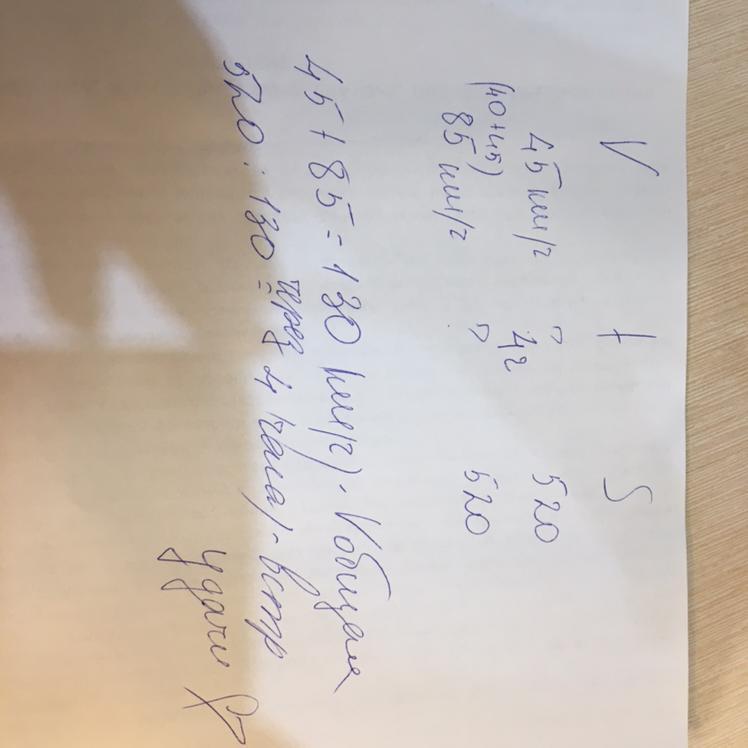 V t S
45 км/ч ? 520
4ч
(40+45)
85 км/ч ? 520
45+85=130 км/ч) - Vобщая
520:130 = через 4 часа) - встр
удачи